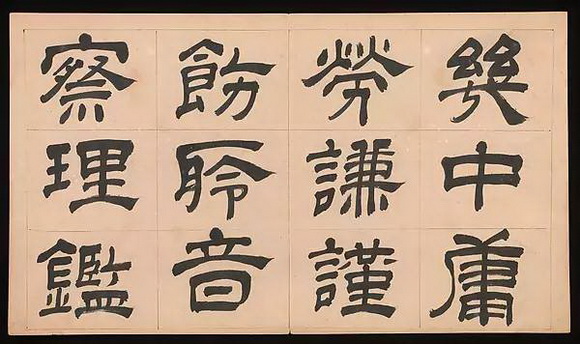 幾中庸
勞謙謹
飭聆音
察理鑑